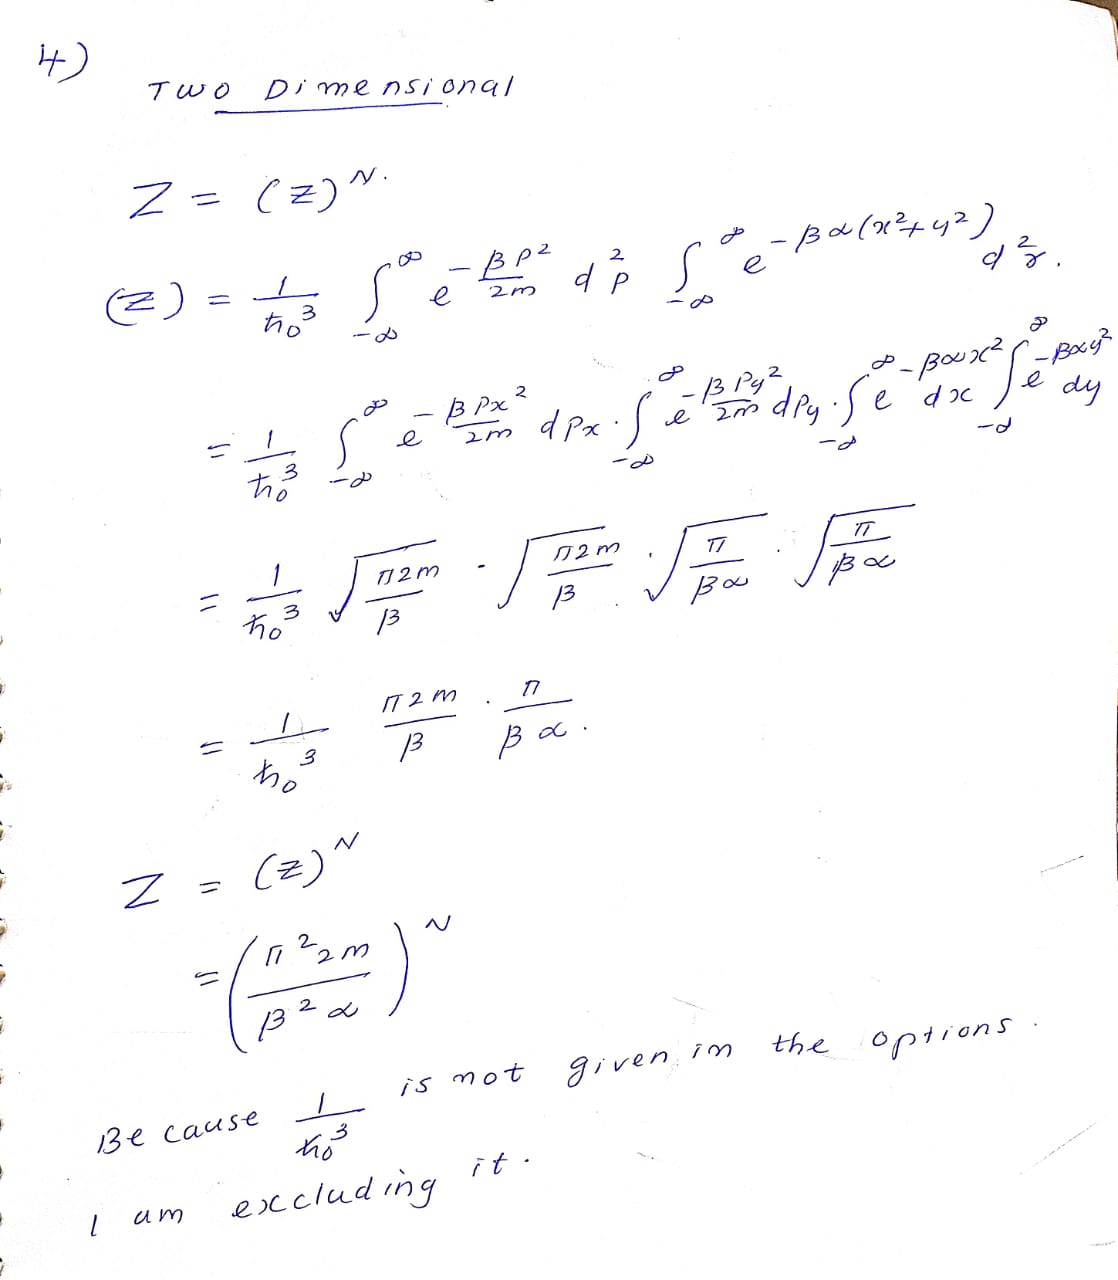 4)
Two Dimensional
Z = (z)^N.
(z) = 1/ħ₀³ ∫_{-∞}^{∞} e^{-βp²/2m} d²p ∫_{-∞}^{∞} e^{-βα(x²+y²)} d²r.
= 1/ħ₀³ ∫_{-∞}^{∞} e^{-βPx²/2m} dPx · ∫_{-∞}^{∞} e^{-βPy²/2m} dPy · ∫_{-∞}^{∞} e^{-βαx²} dx ∫_{-∞}^{∞} e^{-βαy²} dy
= 1/ħ₀³ √(π2m/β) · √(π2m/β) · √(π/βα) · √(π/βα)
= 1/ħ₀³ π2m/β · π/βα.
Z = (z)^N
= (π²2m/β²α)^N
Because 1/ħ₀³ is not given in the options.
I am excluding it.